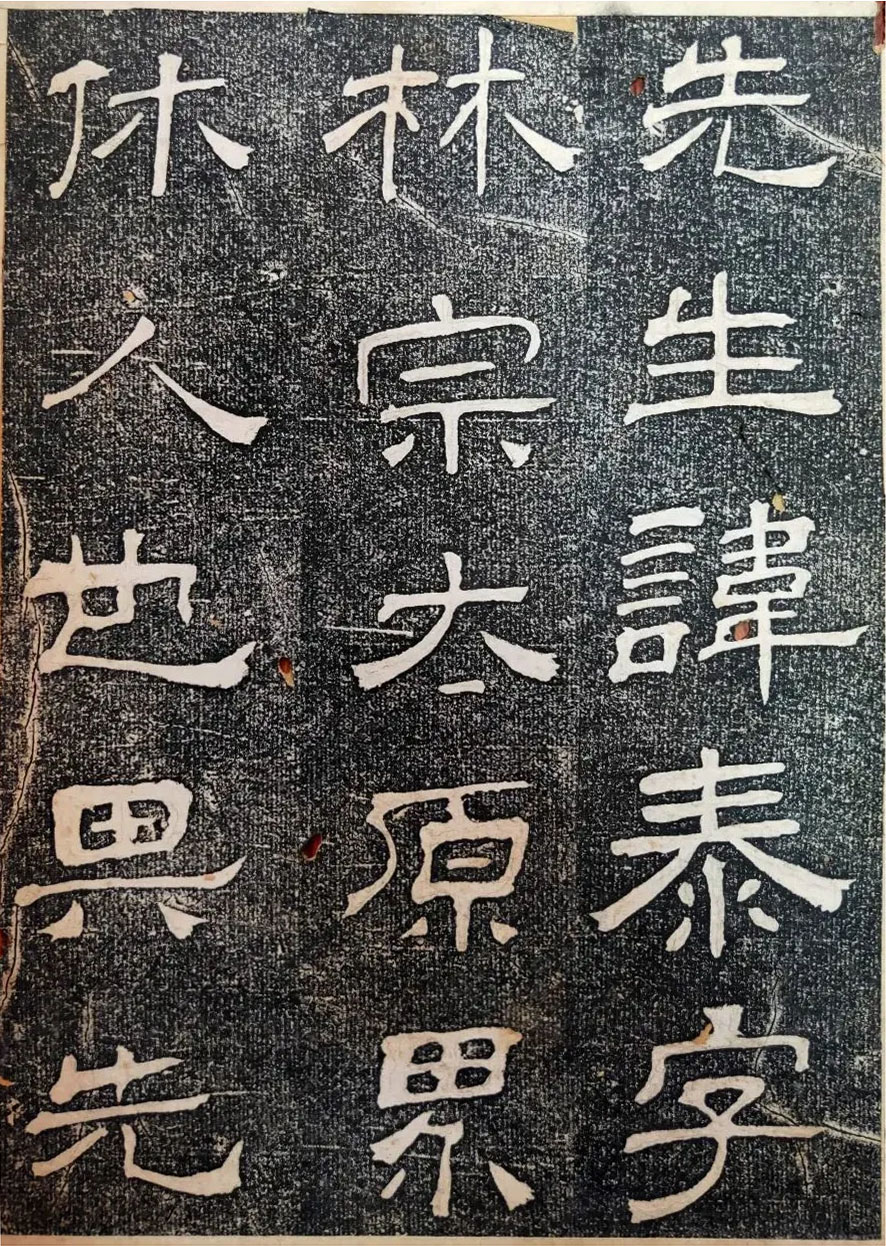 先生諱泰字
林宗太原界
休人也其先